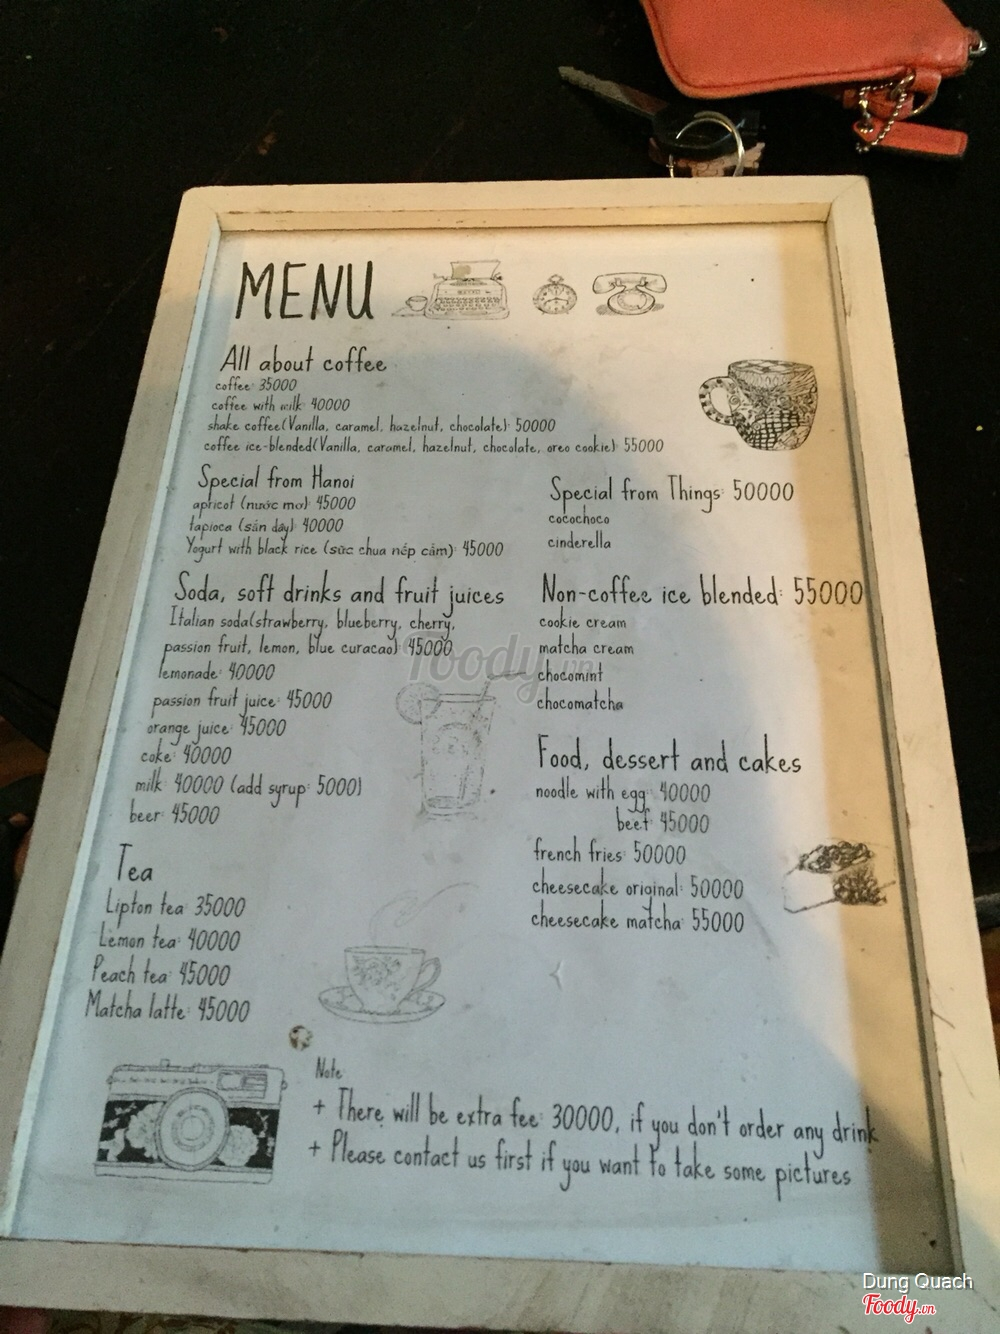 MENU
All about coffee
coffee: 35000
coffee with milk: 40000
shake coffee(Vanilla, caramel, hazelnut, chocolate): 50000
coffee ice-blended(Vanilla, caramel, hazelnut, chocolate, oreo cookie): 55000
Special from Hanoi
apricot (nước mơ): 45000
tapioca (sắn dây): 40000
Yogurt with black rice (sữc chua nếp cẩm): 45000
Special from Things: 50000
cocochoco
cinderella
Soda, soft drinks and fruit juices
Italian soda(strawberry, blueberry, cherry,
passion fruit, lemon, blue curacao): 45000
lemonade: 40000
passion fruit juice: 45000
orange juice: 45000
coke: 40000
milk: 40000 (add syrup: 5000)
beer: 45000
Non-coffee ice blended: 55000
cookie cream
matcha cream
chocomint
chocomatcha
Food, dessert and cakes
noodle with egg: 40000
beef: 45000
french fries: 50000
cheesecake original: 50000
cheesecake matcha: 55000
Tea
Lipton tea: 35000
Lemon tea: 40000
Peach tea: 45000
Matcha latte: 45000
Note
+ There will be extra fee: 30000, if you don't order any drink
+ Please contact us first if you want to take some pictures
Foody.vn
Dung Quach
Foody.vn